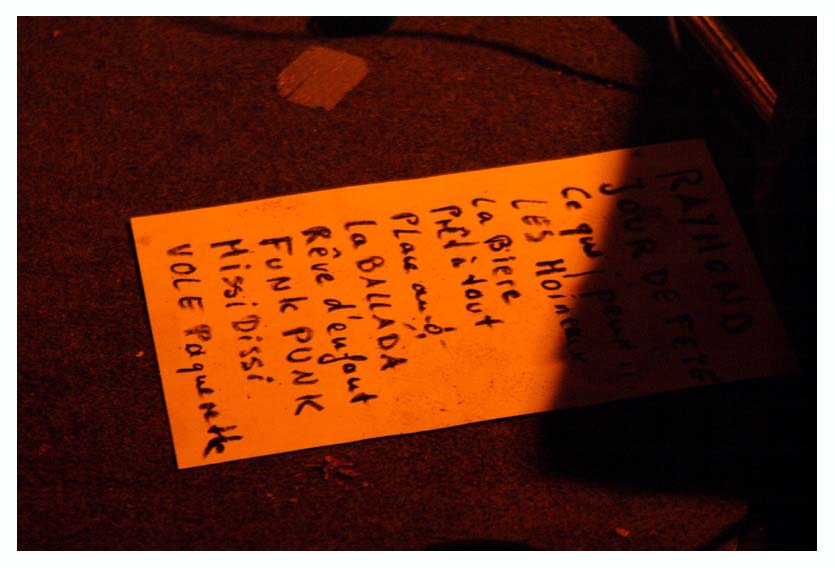 RAYMOND
JOUR DE FETE
Ce qu' j' peux ...
LES Moineaux
La Bière
Prêt à tout
Place au
La BALLADA
Rêve d'enfant
FUNK PUNK
Missi Dissi
VOLE Paquerette